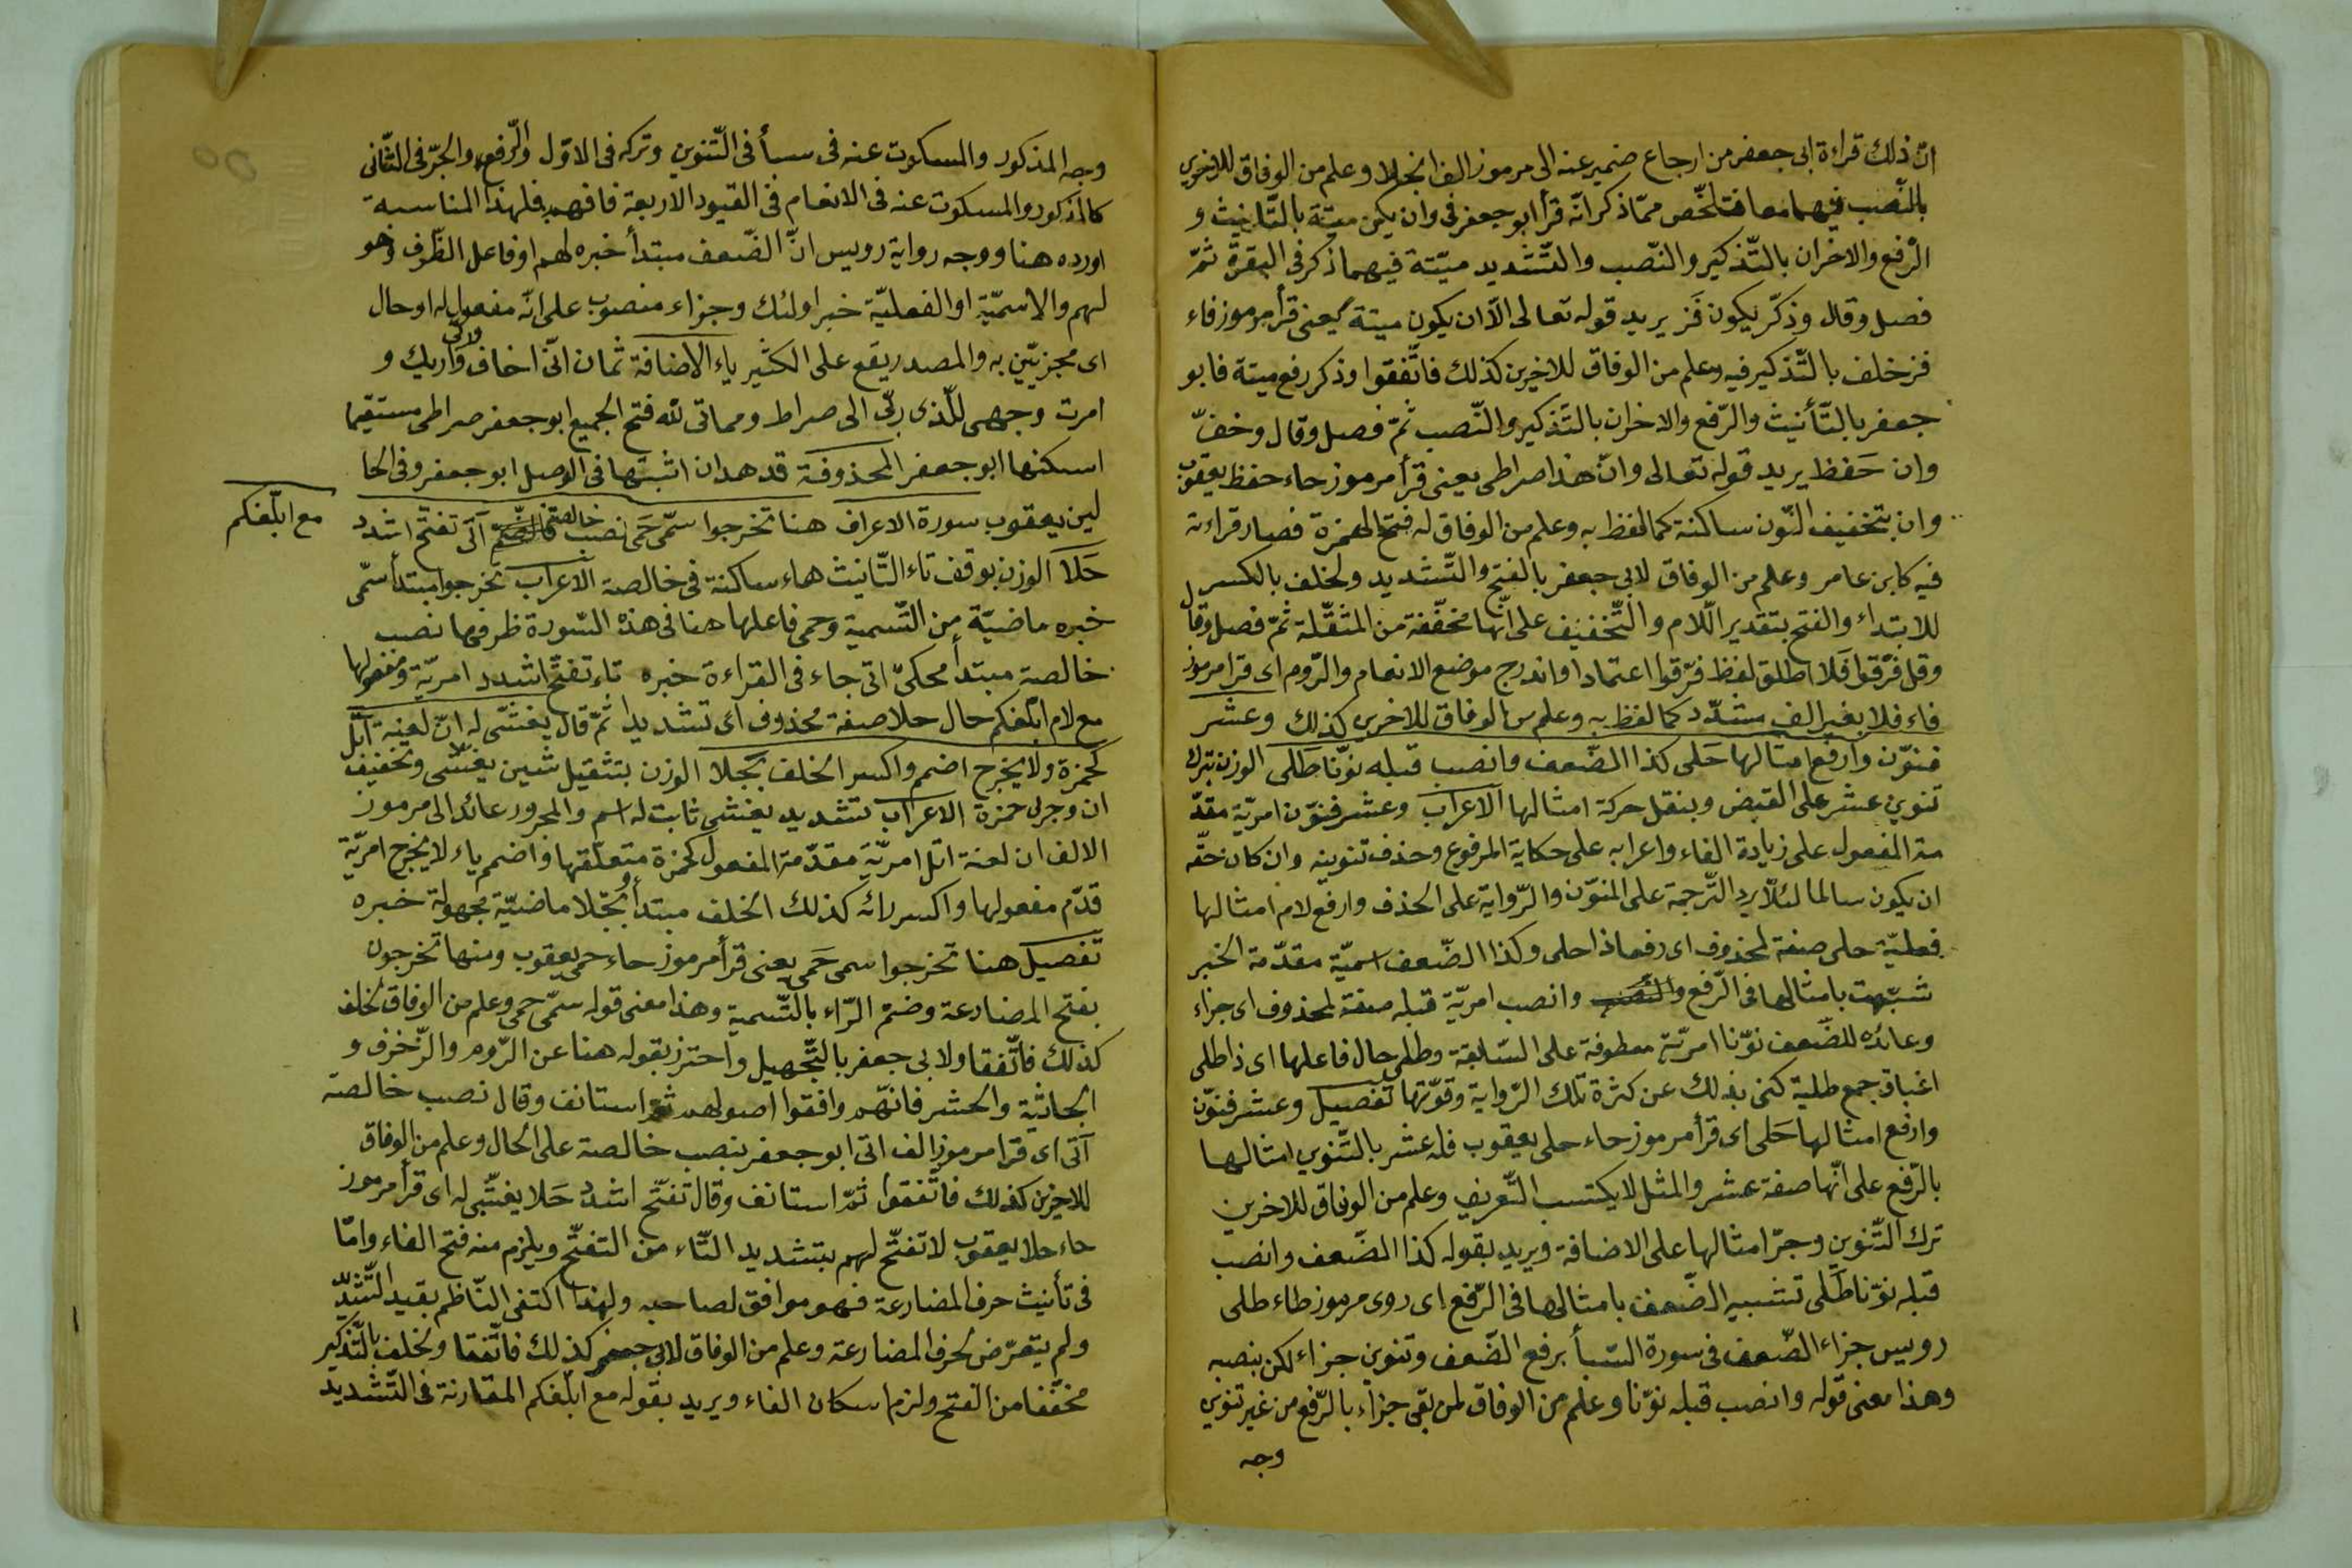 انّ ذلك قراءة ابى جعفر من ارجاع ضمير عنه الى مرموز الف انجلا وعلم من الوفاق للاخرين
بالنّصب فيهما معا فتلخّص ممّا ذكر انّه قرأ ابو جعفر فى وان يكن ميتة بالتّانيث و
الرّفع والاخران بالتّذكير والنّصب والتّشديد ميّتة فيهما ذكر فى البقرة ثمّ
فصل وقال وذكّر يكون فَز يريد قوله تعالى الّا ان يكون ميتة يعنى قرأ مرموز فاء
فز خلف بالتّذكير فيه وعلم من الوفاق للاخرين كذلك فاتّفقوا وذكر رفع ميتة فابو
جعفر بالتّأنيث والرّفع والاخران بالتّذكير والنّصب ثمّ فصل وقال وخفّ
وان حَفظ يريد قوله تعالى وانّ هذا صراطى يعنى قرأ مرموز حاء حفظ يعقوب
وان بتخفيف النّون ساكنة كما لفظ به وعلم من الوفاق له فتح الهمزة فصار قراءته
فيه كابن عامر وعلم من الوفاق لابى جعفر بالفتح والتّشديد ولخلف بالكسر
للابتداء والفتح بتقدير اللّام والتّخفيف على انّها مخفّفة من المثقّلة ثمّ فصل وقال
وقل فرّقوا فَلا اطلق لفظ فرّقوا اعتمادا واندرج موضع الانعام والرّوم اى قرا مرموز
فاء فلا بغير الف مشدّد كما لفظ به وعلم من الوفاق للاخرين كذلك وعشر
فنوّن وارفع امثالها حَلى كذا الضّعف وانصب قبله نوّنا طَلى الوزن بترك
تنوين عشر على القبض وبنقل حركة امثالها الاعراب وعشر فنوّن امريّة مقدّ
مة المفعول على زيادة الفاء واعرابه على حكاية المرفوع وحذف تنوينه وان كان حقّه
ان يكون سالما لئلّا يرد التّرجمة على المنوّن والرّواية على الحذف وارفع لام امثالها
فعليّة حلى صفة لمحذوف اى رفعا ذا حلى وكذا الضّعف اسميّة مقدّمة الخبر
شبّهت بامثالها فى الرّفع وانصب امريّة قبله صفة لمحذوف اى جزاء
وعائده للضّعف نوّنا امريّة معطوفة على السّابقة وطلى حال فاعلها اى ذا طلى
اغباق جمع طلية كنى بذلك عن كثرة تلك الرّواية وقوّتها تفصيل وعشر فنوّن
وارفع امثالها حَلى اى قرأ مرموز حاء حلى يعقوب فله عشر بالتّنوين امثالها
بالرّفع على انّها صفة عشر والمثل لا يكتسب التّعريف وعلم من الوفاق للاخرين
ترك التّنوين وجرّ امثالها على الاضافة ويريد بقوله كذا الضّعف وانصب
قبله نوّنا طَلى تشبيه الضّعف بامثالها فى الرّفع اى روى مرموز طاء طلى
رويس جزاء الضّعف فى سورة السّبأ برفع الضّعف وتنوين جزاء لكن بنصبه
وهذا معنى قوله وانصب قبله نوّنا وعلم من الوفاق لمن بقى جزاء بالرّفع من غير تنوين
وجه
وجه المذكور والمسكوت عنه فى سبأ فى التّنوين وتركه فى الاوّل والرّفع والجرّ فى الثّانى
كالمذكور والمسكوت عنه فى الانعام فى القيود الاربعة فافهم فلهذا المناسبة
اورده هنا ووجه رواية رويس انّ الضّعف مبتدأ خبره لهم او فاعل الظّرف وهو
لهم والاسميّة او الفعليّة خبر اولئك وجزاء منصوب على انّه مفعول له او حال
اى مجزيّين به والمصدر يقع على الكثير ياء الاضافة ثمان انّى اخاف واريك و
امرت وجهى للّذى ربّى الى صراط ومماتى لله فتح الجميع ابو جعفر صراطى مستقيما
اسكنها ابو جعفر المحذوفة قد هدان اثبتها فى الوصل ابو جعفر وفى الحا
لين يعقوب سورة الاعراف هنا تخرجوا سمّى حَمى نصب خالصة اَتى تفتّح اشدد
مع ابلّغكم
حَلا الوزن بوقف تاء التّانيث هاء ساكنة فى خالصة الاعراب تخرجوا مبتدأ سمّى
خبره ماضيّة من التّسمية وحمى فاعلها هنا فى هذه السّورة ظرفها نصب
خالصة مبتدأ محكىّ اتى جاء فى القراءة خبره تاء تفتّح اشدد امريّة ومفعولها
مع لام ابلّغكم حال حلا صفة محذوف اى تشديدا ثمّ قال يغشّى له ان لعنة اتل
كحمزة ولا يخرج اضمم واكسر الخلف بجّلا الوزن بتثقيل شين يغشى وتخفيف
ان وجرى حمزة الاعراب تشديد يغشى ثابت له اسم والمجرور عائد الى مرموز
الالف ان لعنة اتل امريّة مقدّمة المفعول كحمزة متعلّقها واضمم ياء لا يخرج امريّة
قدّم مفعولها واكسر رائه كذلك الخلف مبتدأ وبجّلا ماضيّة مجهولة خبره
تفصيل هنا تخرجوا سمى حَمى يعنى قرأ مرموز حاء حمى يعقوب ومنها تخرجون
بفتح المضارعة وضمّ الرّاء بالتّسمية وهذا معنى قوله سمّى حمى وعلم من الوفاق لخلف
كذلك فاتّفقا ولابى جعفر بالتّجهيل واحترز بقوله هنا عن الرّوم والزّخرف و
الجاثية والحشر فانّهم وافقوا اصولهم ثمّ استانف وقال نصب خالصة
اَتى اى قرا مرموز الف اتى ابو جعفر بنصب خالصة على الحال وعلم من الوفاق
للاخرين كذلك فاتّفقوا ثمّ استانف وقال تفتّح اشدد حَلا يغشى له اى قرأ مرموز
حاء حلا يعقوب لا تفتّح لهم بتشديد التّاء من التفتّح ويلزم منه فتح الفاء وامّا
فى تأنيث حرف المضارعة فهو موافق لصاحبه ولهذا اكتفى النّاظم بقيد التّشديد
ولم يتعرّض لحرف المضارعة وعلم من الوفاق لابى جعفر كذلك فاتّفقا ولخلف بالتّذكير
مخفّفا من الفتح ولزم اسكان الفاء ويريد بقوله مع ابلّغكم المقارنة فى التّشديد